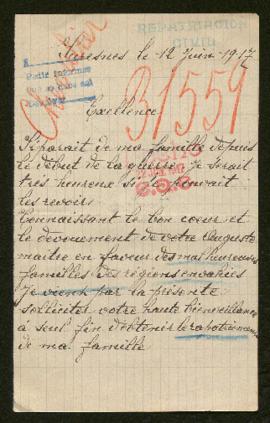 Suresnes le 12 Juin 1917
REPATRIACION
CIVIL
31559
Excellence
Séparait de ma famille depuis
le début de la guerre. Je serait
très heureux si je pouvait
les revoir.
Connaissant le bon cœur et
le devouement de votre Auguste
maitre en faveur des malheureuses
familles des régions envahies
Je viens par la présente
sollicitet votre haute bienveillance
à seul fin d'obtenir le rapatriement
de ma famille